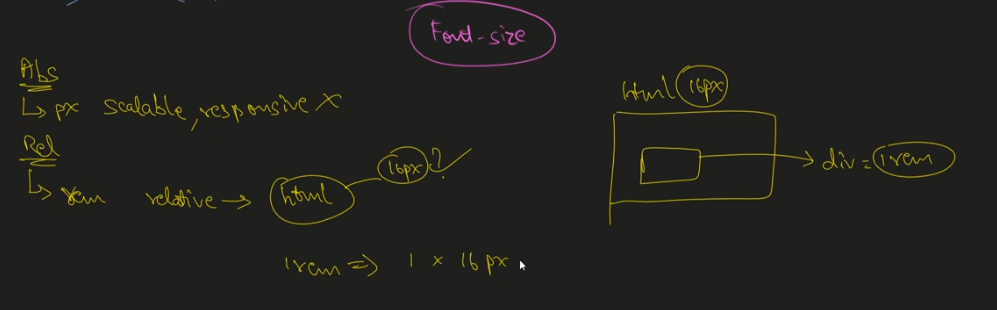 Font-size
Abs
↳ px scalable, responsive X
Rel
↳ rem relative → html 16px ? ✓
1rem ⇒ 1 × 16px
html 16px
→ div = 1rem